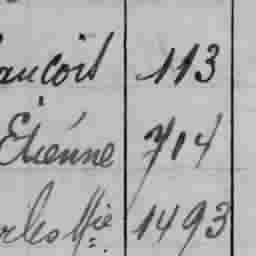 ancois 113
Etienne 714
rles Mie 1493